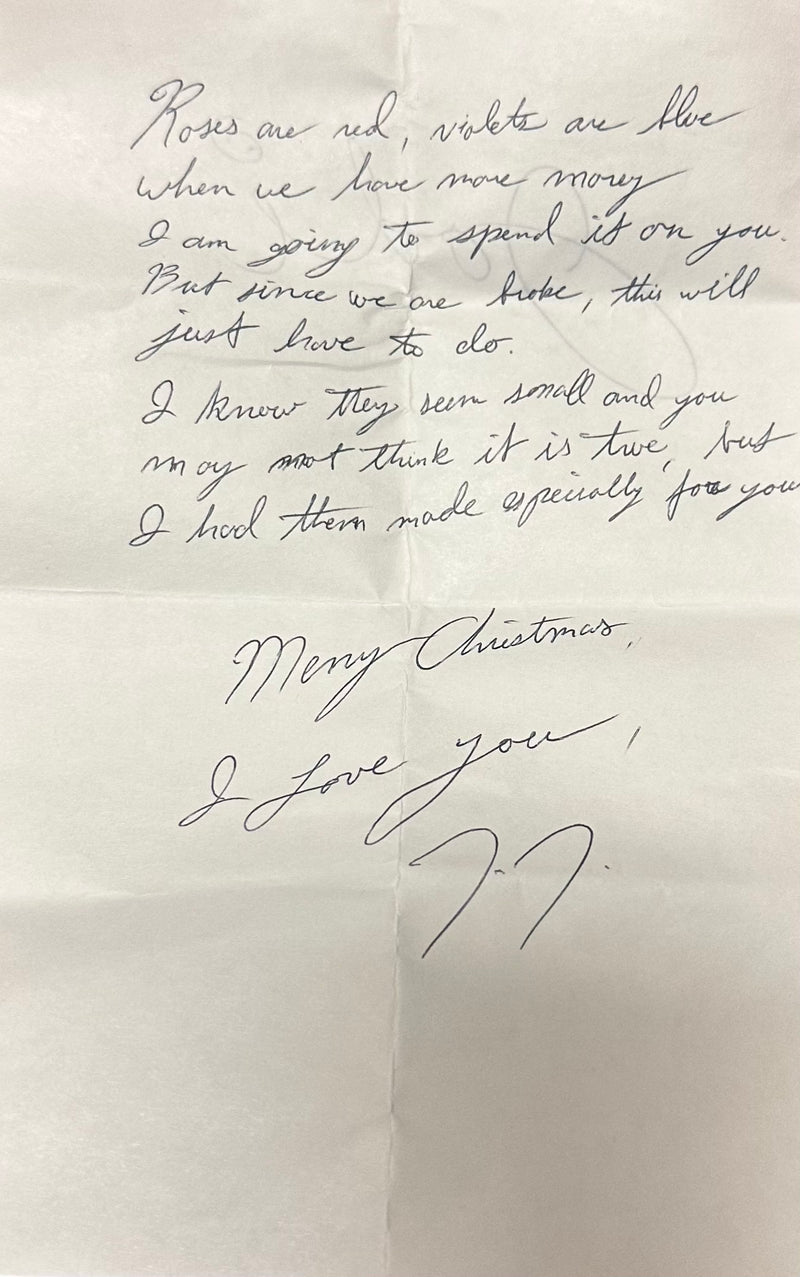 Roses are red, violets are blue
when we have more money
I am going to spend it on you.
But since we are broke, this will
just have to do.
I know they seem small and you
may not think it is true, but
I had them made especially for you
Merry Christmas,
I Love you,
J.J.